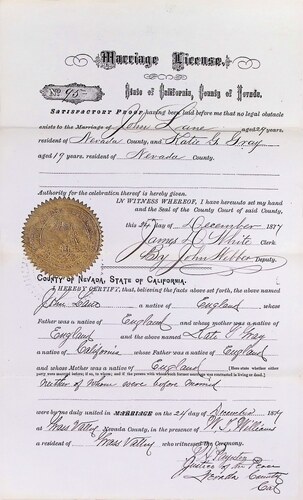 Marriage License.
No. 95 State of California, County of Nevada.
SATISFACTORY PROOF having been laid before me that no legal obstacle
exists to the Marriage of John Lane aged 29 years,
resident of Nevada County, and Kate G. Gray
aged 19 years. resident of Nevada County.
Authority for the celebration thereof is hereby given.
IN WITNESS WHEREOF, I have hereunto set my hand
and the Seal of the County Court of said County,
this 24 day of December 187
James D. White Clerk.
By John Deputy.
COUNTY OF NEVADA, STATE OF CALIFORNIA.
I HEREBY CERTIFY, that, believing the facts above set forth, the above named
John Lane a native of England whose
Father was a native of England and whose mother was a native of
England and the above named Kate G. Gray
a native of California whose Father was a native of England
and whose Mother was a native of England [Here state whether either
party were married before; if so, to whom; and if the person with whom such former marriage was contracted is living or dead.]
neither of whom were before married
were by me duly united in MARRIAGE on the 24 day of December 187
at Grass Valley Nevada County, in the presence of W. J. Williams
a resident of Grass Valley who witnessed the Ceremony.
Justice of the Peace
Nevada County
Cal